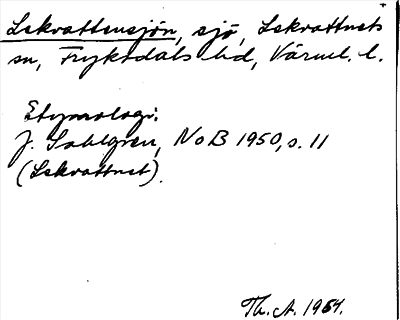 Lekvattensjön, sjö, Lekvattnets
sn, Fryksdals hd, Värml. l.
Etymologi:
J. Sahlgren, NoB 1950, s. 11
(Lekvattnet).
Th. A. 1964.